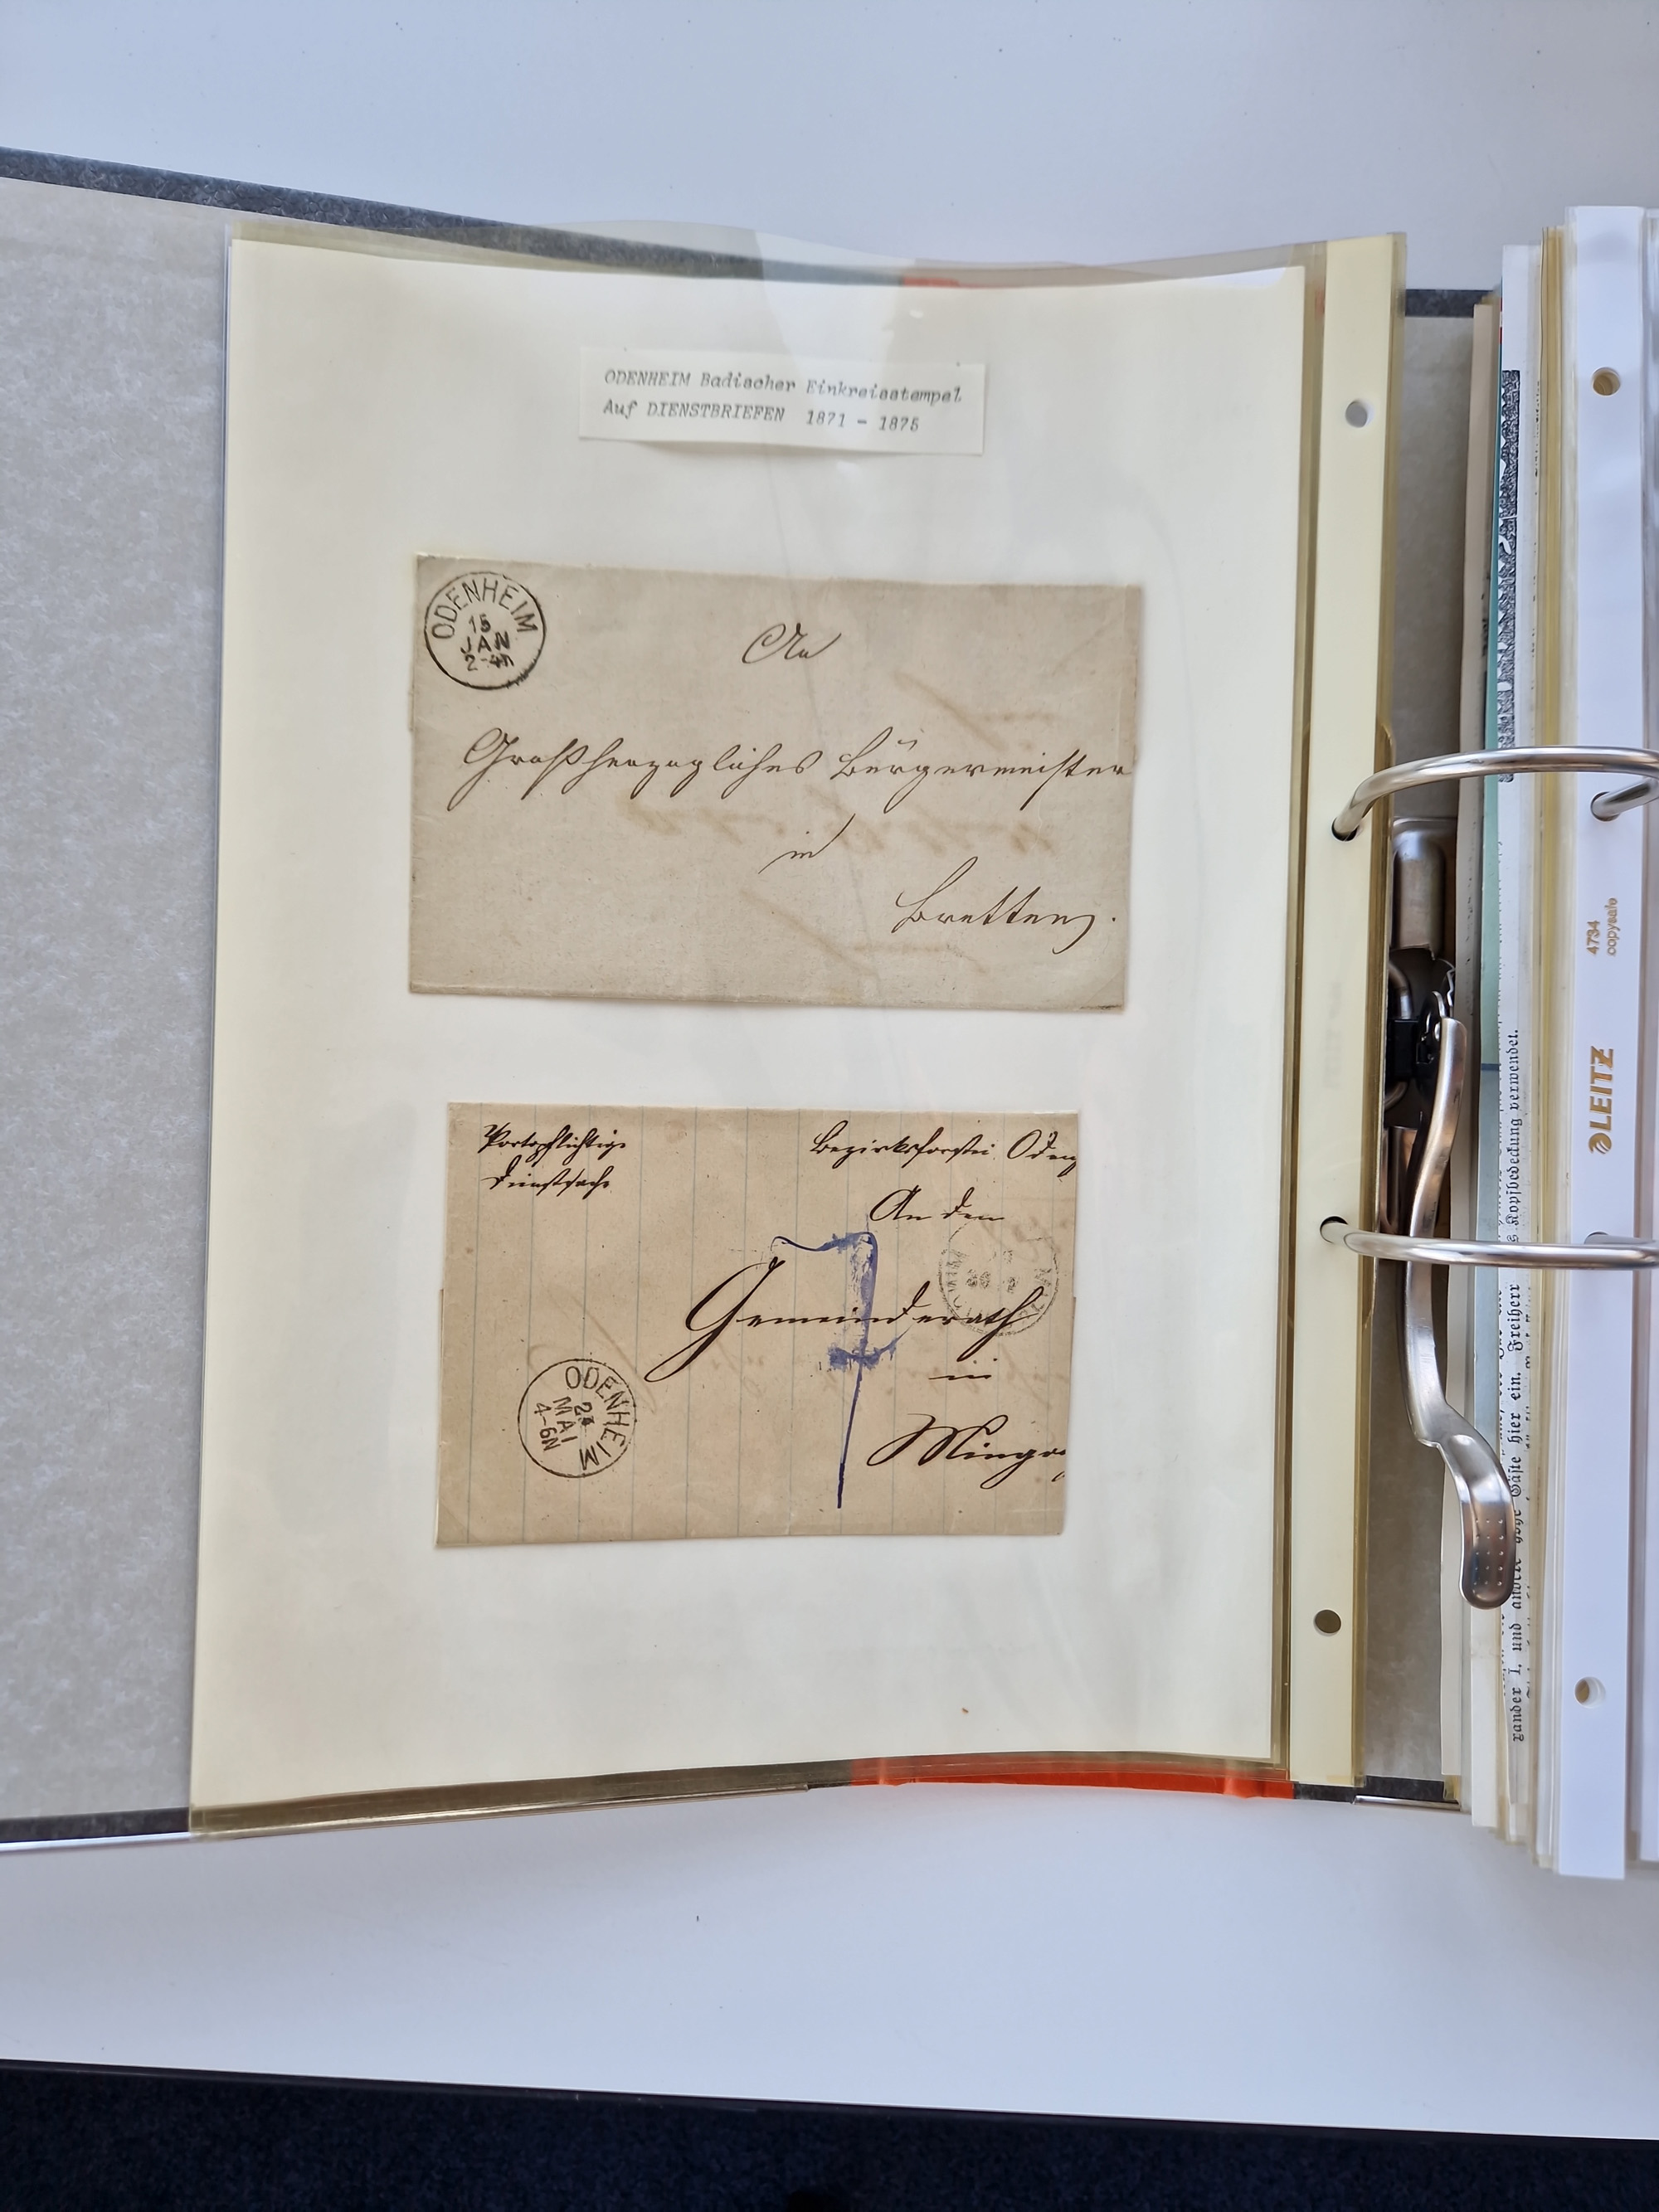 ODENHEIM Badischer Einkreisstempel
Auf DIENSTBRIEFEN 1871 - 1875
ODENHEIM
15
JAN
2-4N
An
Großherzogliches Bürgermeister
in
Bretten.
Portopflichtige
Dienstsache
Bezirksforstei Oden
An den
7
Gemeinderath
in
Mingo
ODENHEIM
MAI
4-6N
4734
copysafe
LEITZ
Kopfbedeckung verwendet.
Gäste hier ein. Freiherr
xander I. und andere hohe